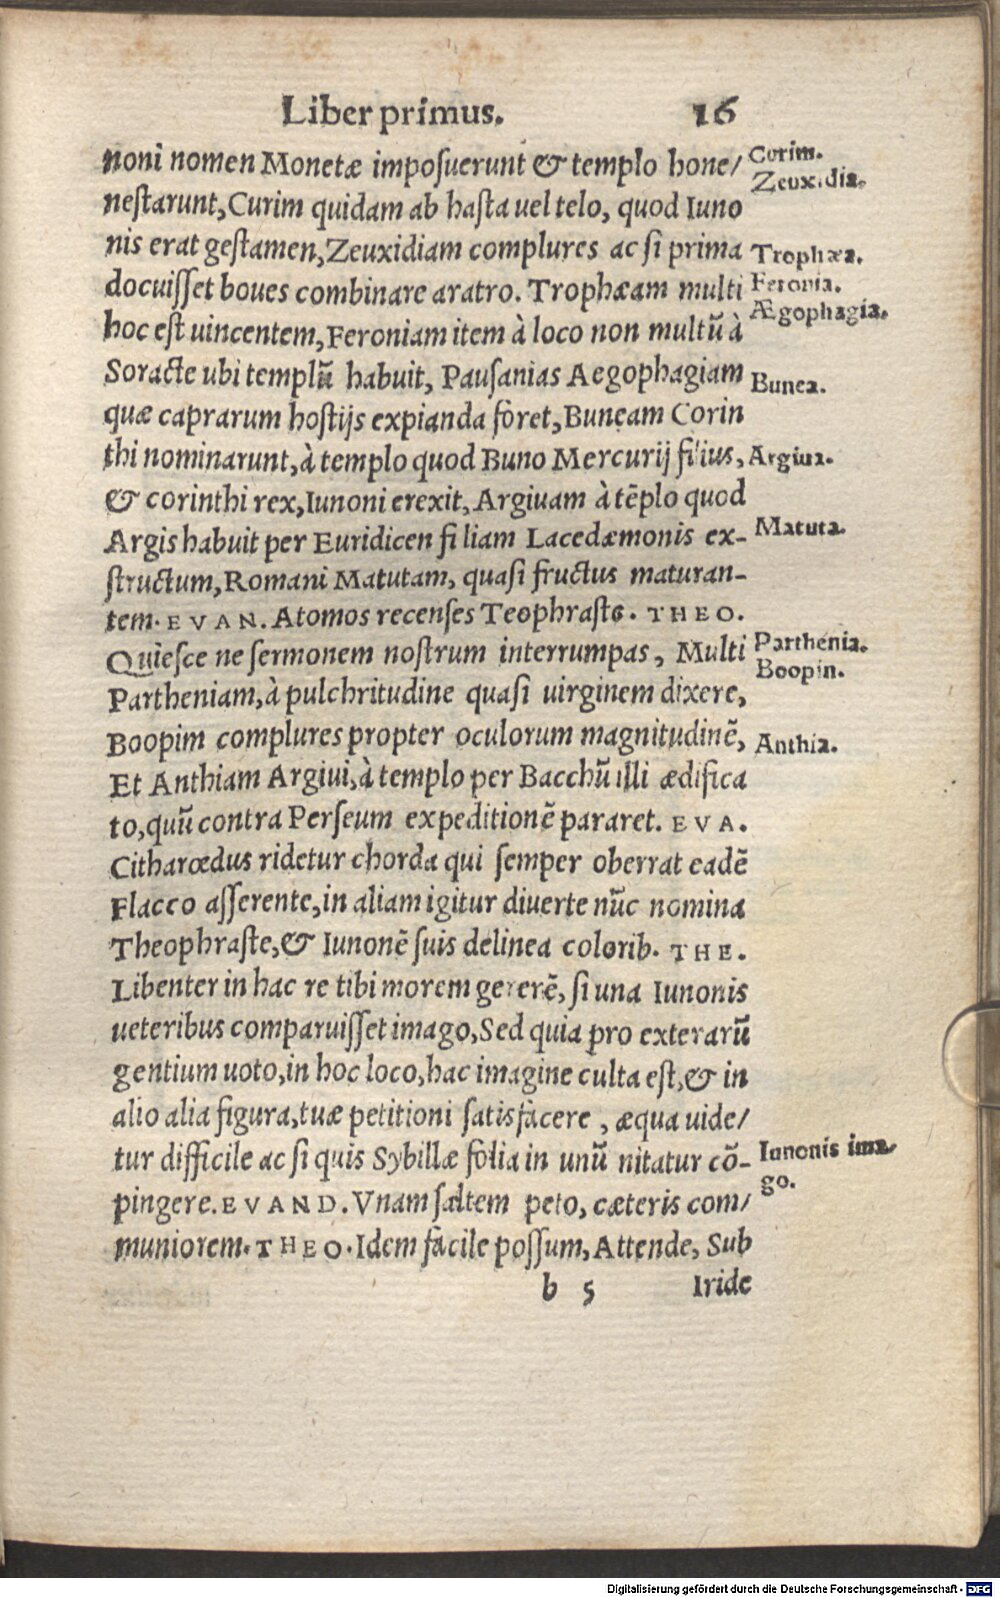 Liber primus. 16
noni nomen Monetæ imposuerunt & templo hone/
nestarunt, Curim quidam ab hasta uel telo, quod Iuno
nis erat gestamen, Zeuxidiam complures ac si prima
docuisset boues combinare aratro. Trophæam multi
hoc est uincentem, Feroniam item à loco non multũ à
Soracte ubi templũ habuit, Pausanias Aegophagiam
quæ caprarum hostijs expianda foret, Buneam Corin
thi nominarunt, à templo quod Buno Mercurij filius,
& corinthi rex, Iunoni erexit, Argiuam à tẽplo quod
Argis habuit per Euridicen filiam Lacedæmonis ex-
structum, Romani Matutam, quasi fructus maturan-
tem. EVAN. Atomos recenses Teophraste. THEO.
Quiesce ne sermonem nostrum interrumpas, Multi
Partheniam, à pulchritudine quasi uirginem dixere,
Boopim complures propter oculorum magnitudinẽ,
Et Anthiam Argiui, à templo per Bacchũ illi ædifica
to, quũ contra Perseum expeditionẽ pararet. EVA.
Citharœdus ridetur chorda qui semper oberrat eadẽ
Flacco asserente, in aliam igitur diuerte nũc nomina
Theophraste, & Iunonẽ suis delinea colorib. THE.
Libenter in hac re tibi morem gererẽ, si una Iunonis
ueteribus comparuisset imago, Sed quia pro exterarũ
gentium uoto, in hoc loco, hac imagine culta est, & in
alio alia figura, tuæ petitioni satisfacere, æqua uide/
tur difficile ac si quis Sybillæ folia in unũ nitatur cõ-
pingere. EVAND. Vnam saltem peto, cæteris com/
muniorem. THEO. Idem facile possum, Attende, Sub
b 5 Iride
Curim.
Zeuxidia.
Trophæa.
Feronia.
Ægophagia.
Bunea.
Argiua.
Matuta.
Parthenia.
Boopin.
Anthia.
Iunonis ima-
go.
Digitalisierung gefördert durch die Deutsche Forschungsgemeinschaft - DFG